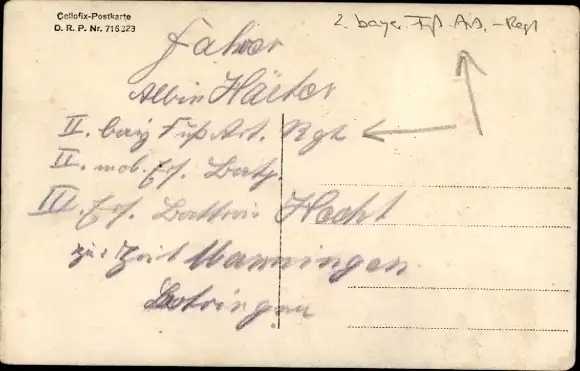 Cellofix-Postkarte
D. R. P. Nr. 716323
2. bayr. Fuß-Art.-Regt
Fahrer
Albin Häcker
II. bay Fuß Art. Rgt
II. mob. Ers. Batj.
III. Ers. Battrie Hecht
zur Zeit Manningen
Lotringen